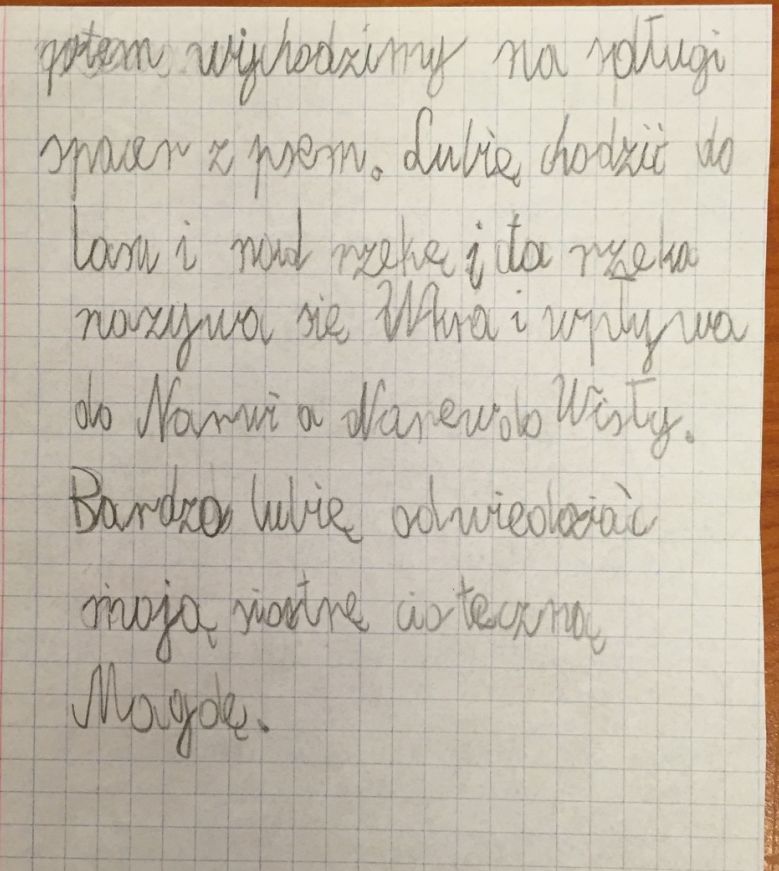 potem wychodzimy na długi
spacer z psem. Lubię chodzić do
lasu i nad rzekę i ta rzeka
nazywa się Wkra i wpływa
do Narwi a Narew do Wisły.
Bardzo lubię odwiedzać
moją siostrę cioteczną
Magdę.